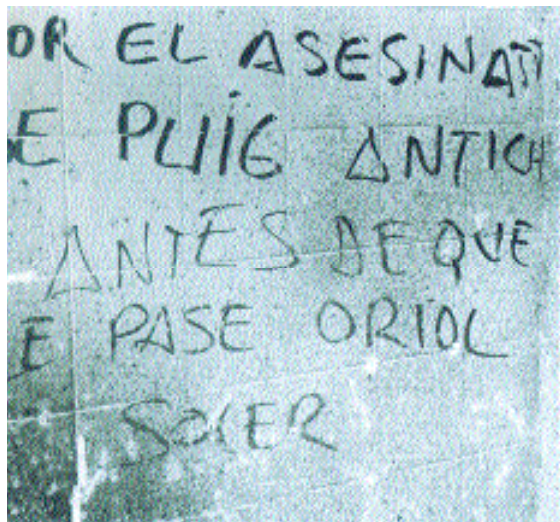 OR EL ASESINAT
E PUIG ANTICH
ANTES DE QUE
E PASE ORIOL
SOLER